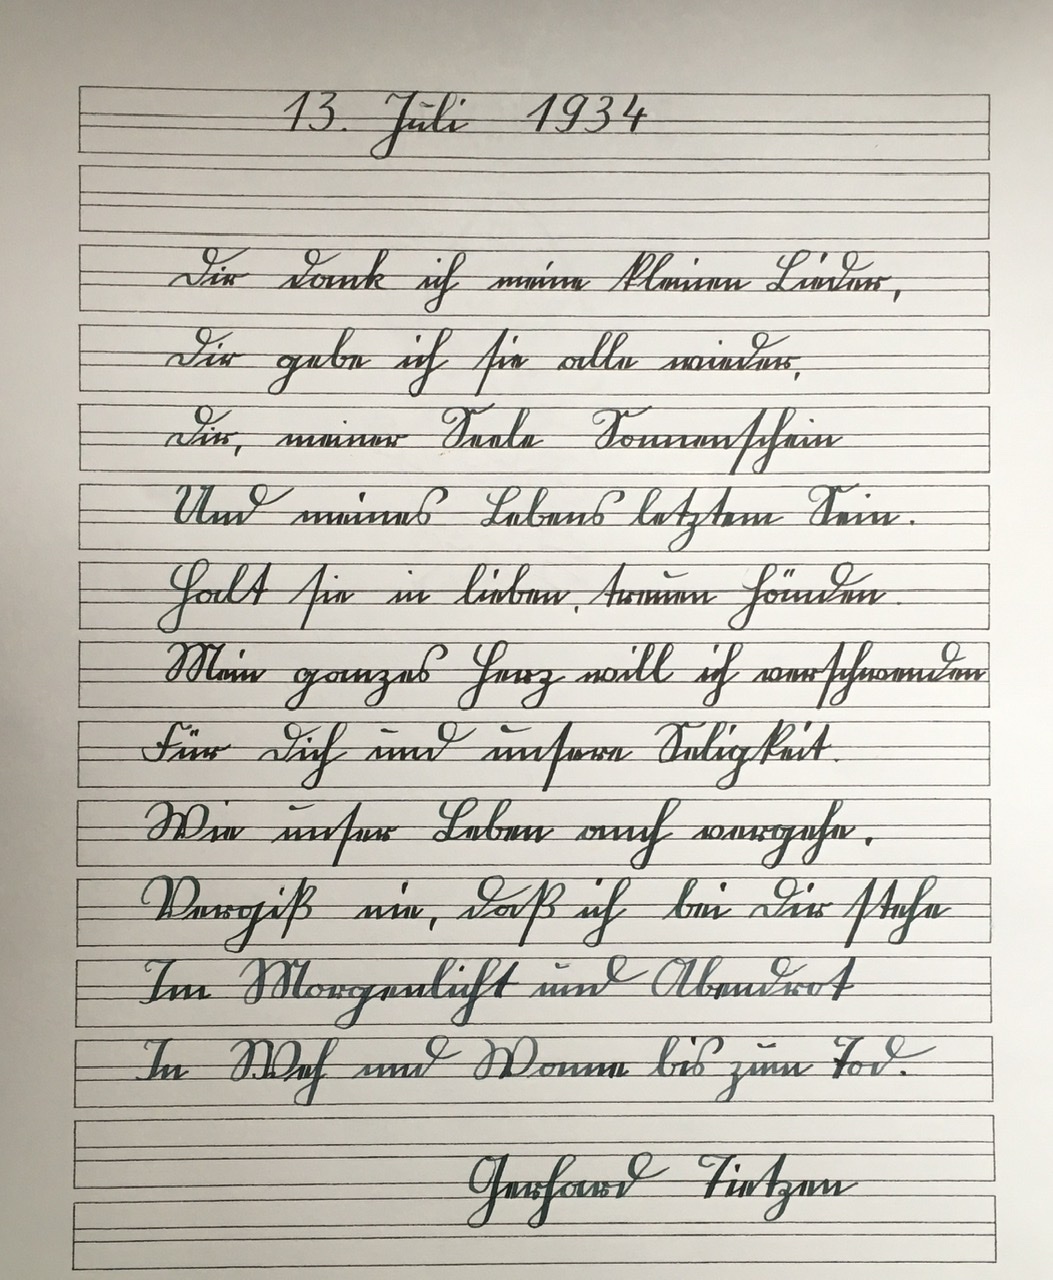 13. Juli 1934
Dir dank ich meine kleinen Lieder,
Dir gebe ich sie alle wieder,
Dir, meiner Seele Sonnenschein
Und meines Lebens letztem Sein.
Halt sie in lieben, treuen Händen.
Mein ganzes Herz will ich verschwenden
Für Dich und unsere Seligkeit.
Wie unser Leben auch vergehe,
Vergiß nie, daß ich bei Dir stehe
Im Morgenlicht und Abendrot
In Weh und Wonne bis zum Tod.
Gerhard Tietzen